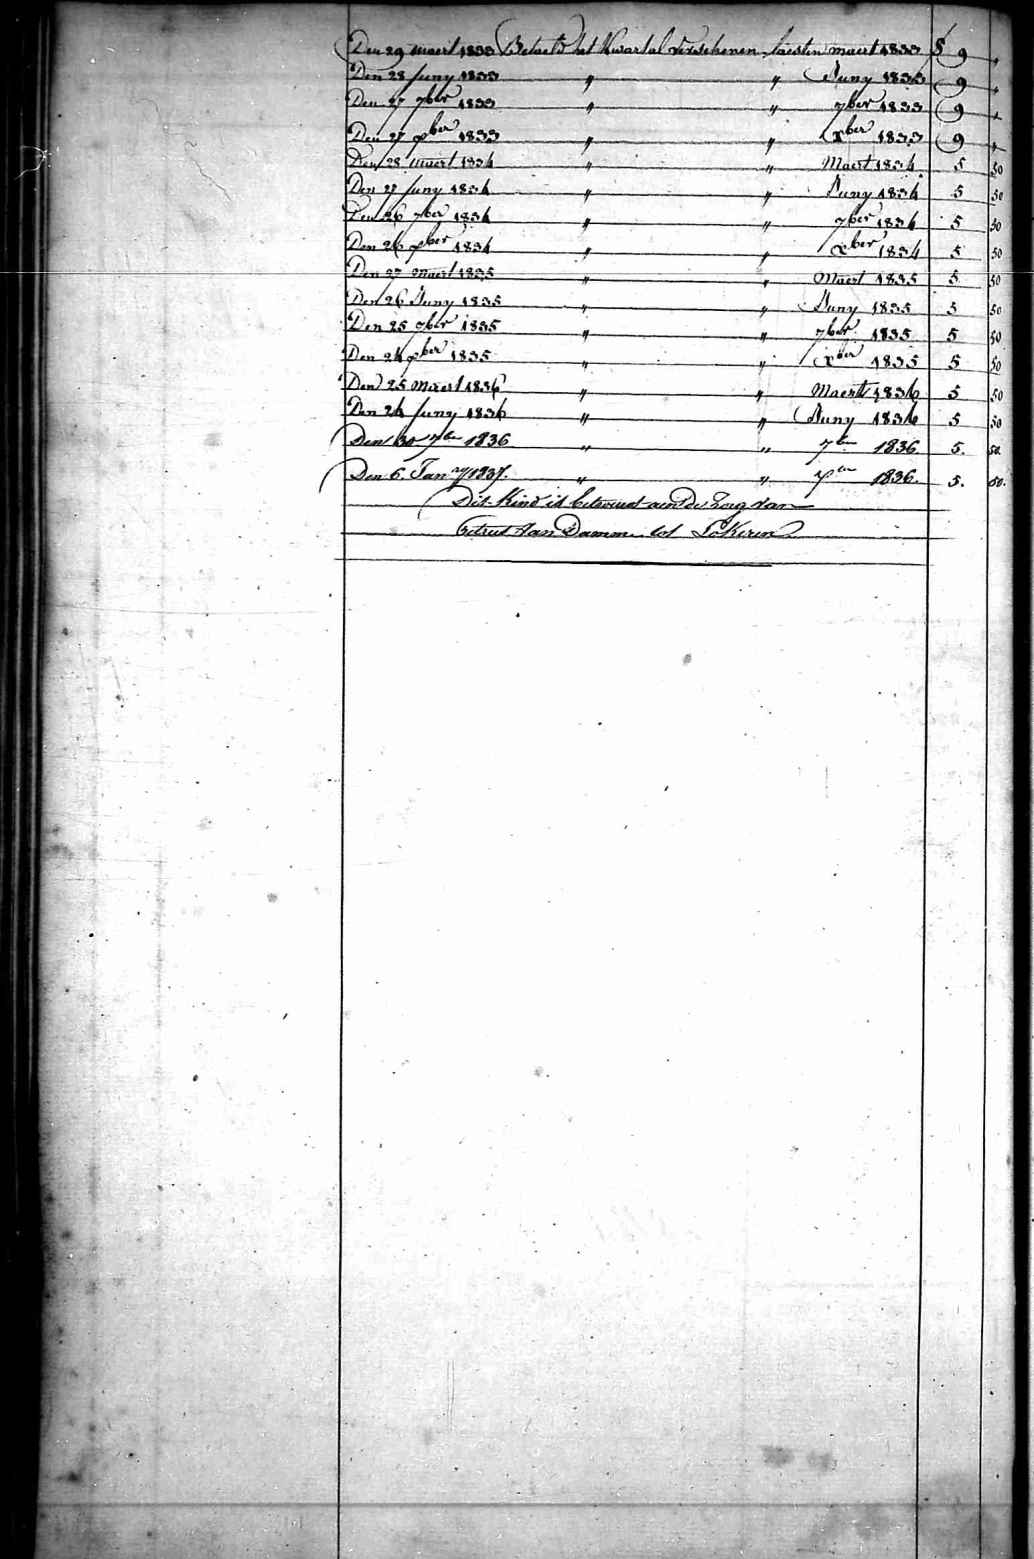 Den 29 maert 1833 Betaeld het Kwartal verschenen laesten maert 1833 f 9 "
Den 28 Juny 1833 " " Juny 1833 9 "
Den 27 7ber 1833 " " 7ber 1833 9 "
Den 27 xber 1833 " " xber 1833 9 "
Den 28 maert 1834 " " Maert 1834 5 50
Den 27 Juny 1834 " " Juny 1834 5 50
Den 26 7ber 1834 " " 7ber 1834 5 50
Den 26 xber 1834 " " xber 1834 5 50
Den 27 maert 1835 " " Maert 1835 5 50
Den 26 Juny 1835 " " Juny 1835 5 50
Den 25 7ber 1835 " " 7ber 1835 5 50
Den 24 xber 1835 " " xber 1835 5 50
Den 25 Maert 1836 " " Maert 1836 5 50
Den 24 Juny 1836 " " Juny 1836 5 50
Den 30 7ber 1836 " " 7ber 1836 5. 50.
Den 6. Janry 1837. " " 1836. 5. 50.
Dit Kind is betrouwt aen De Zorg van
Van Damme tot Lokeren